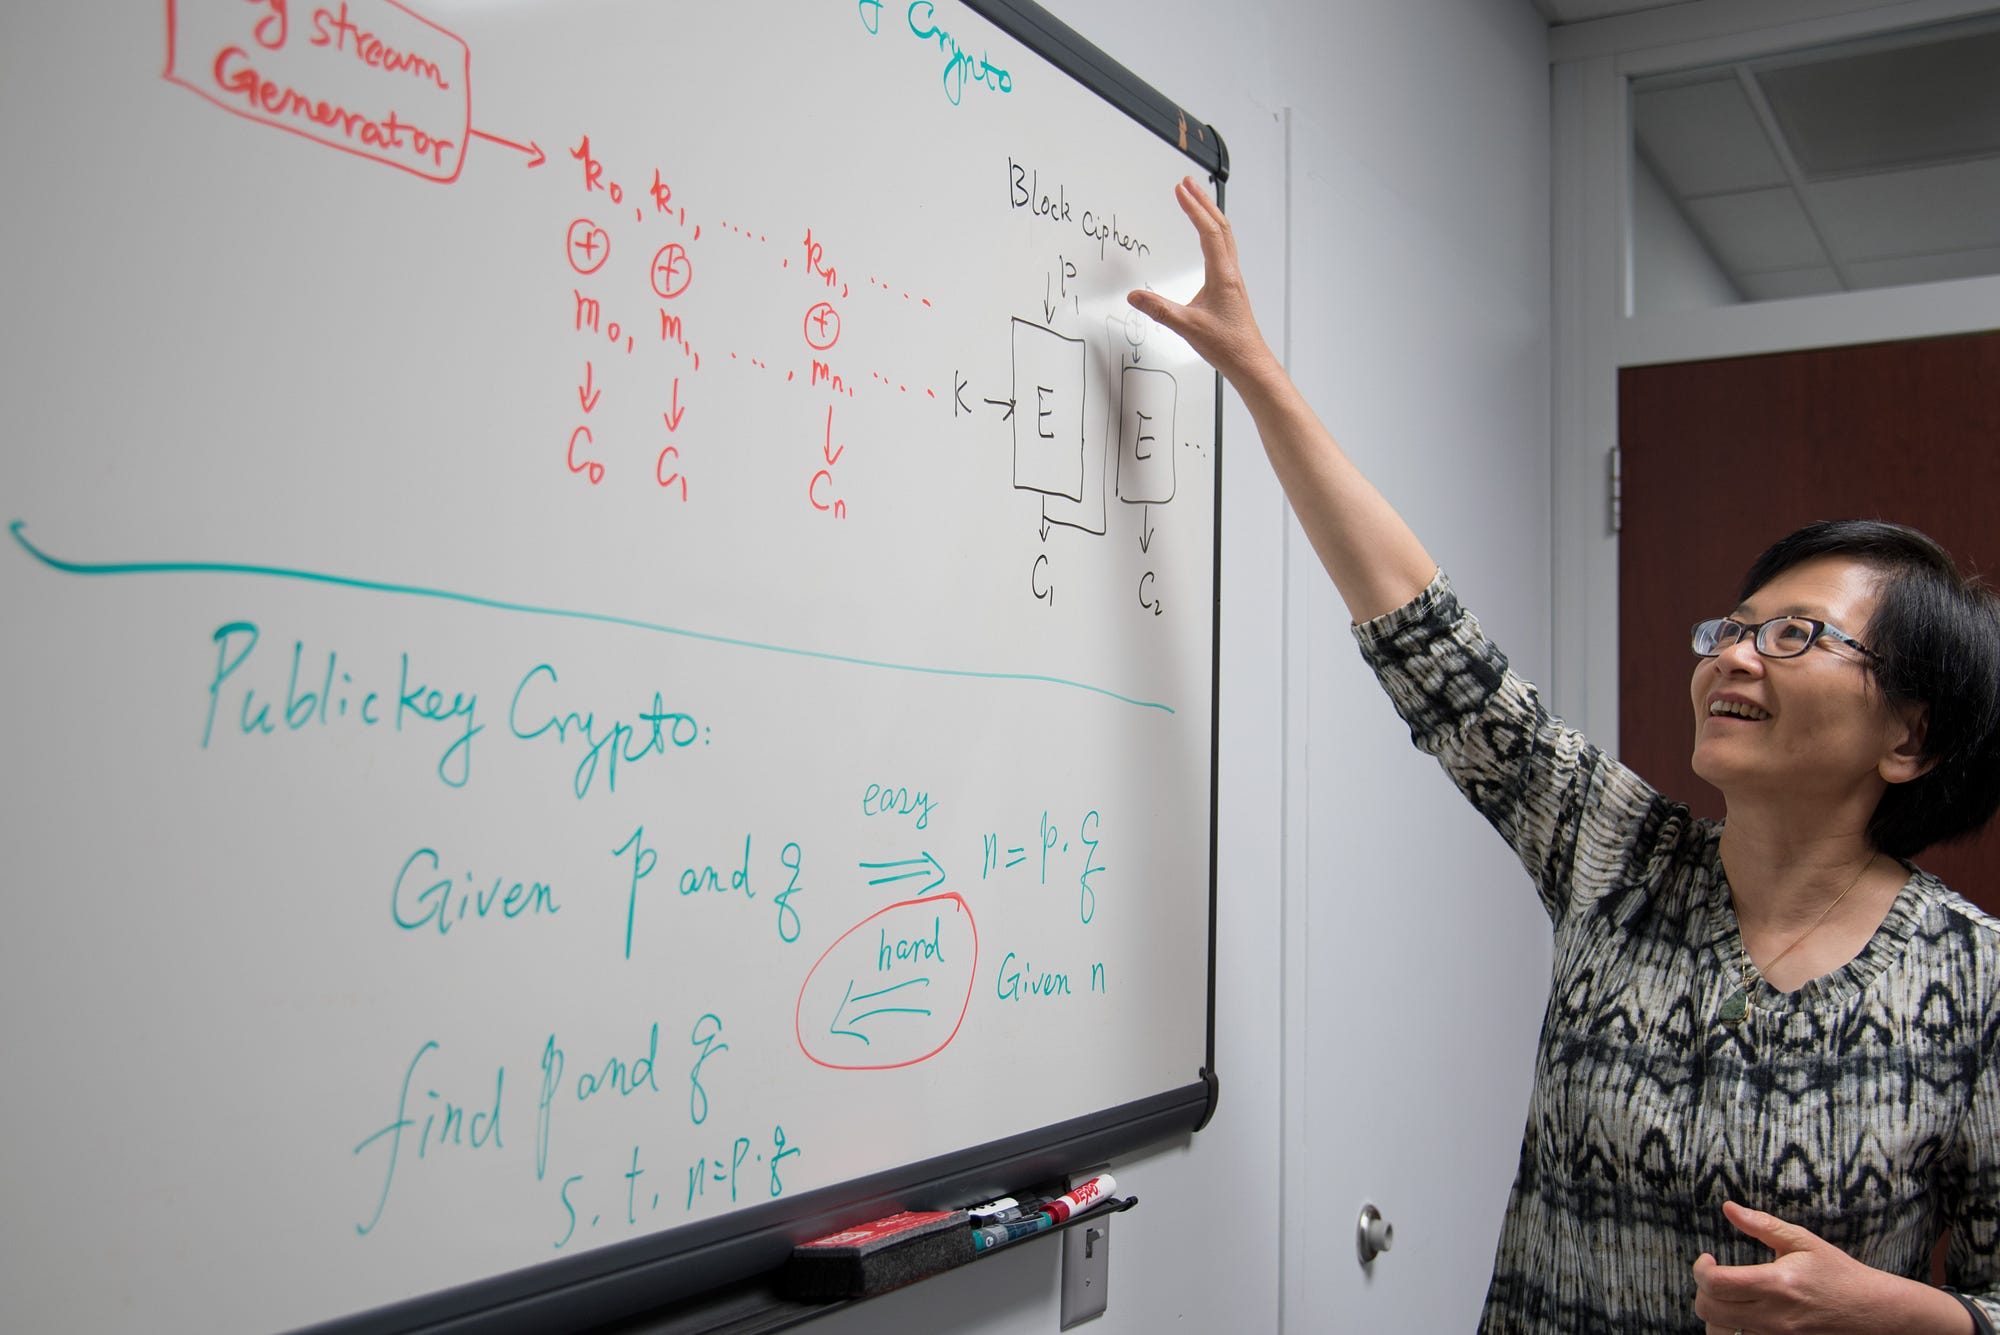 y stream
Generator
Crypto
k₀, k₁, ..... , kₙ, .....
⊕ ⊕ ⊕
m₀, m₁, ..... , mₙ, .....
↓ ↓ ↓
C₀ C₁ Cₙ
Block cipher
P₁
⊕
K → E E ...
C₁ C₂
Public key Crypto:
easy
Given p and q ⇒ n = p · q
hard
⇐ Given n
find p and q
s.t. n = p · q
EXPO